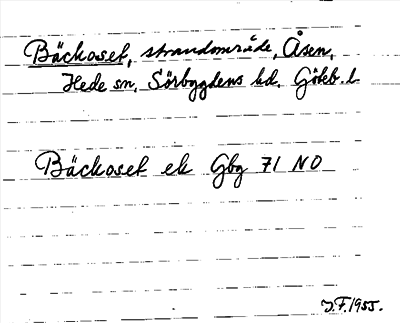 Bäckoset, strandområde, Åsen,
Hede sn, Sörbygdens hd. Göteb. l.
Bäckoset ek Gbg 71 NO
J.F. 1955.